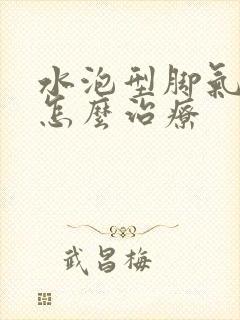 水泡型脚氣
怎麼治療
武昌梅